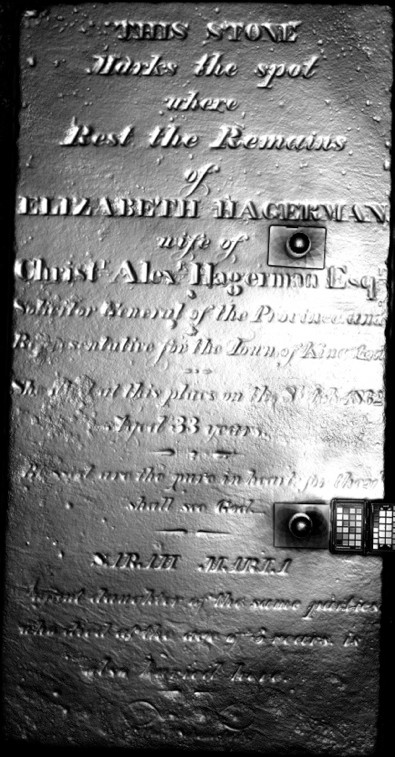 THIS STONE
Marks the spot
where
Rest the Remains
of
ELIZABETH HAGERMAN
wife of
Christr. Alexr. Hagerman Esqr.
Solicitor General of the Province and
Representative for the Town of Kingston
She died at this place on the 1832
Aged 33 years.
Blessed are the pure in heart for they
shall see God.
SARAH MARIA
Infant daughter of the same parties
who died at the age of 6 years, is
also buried here.